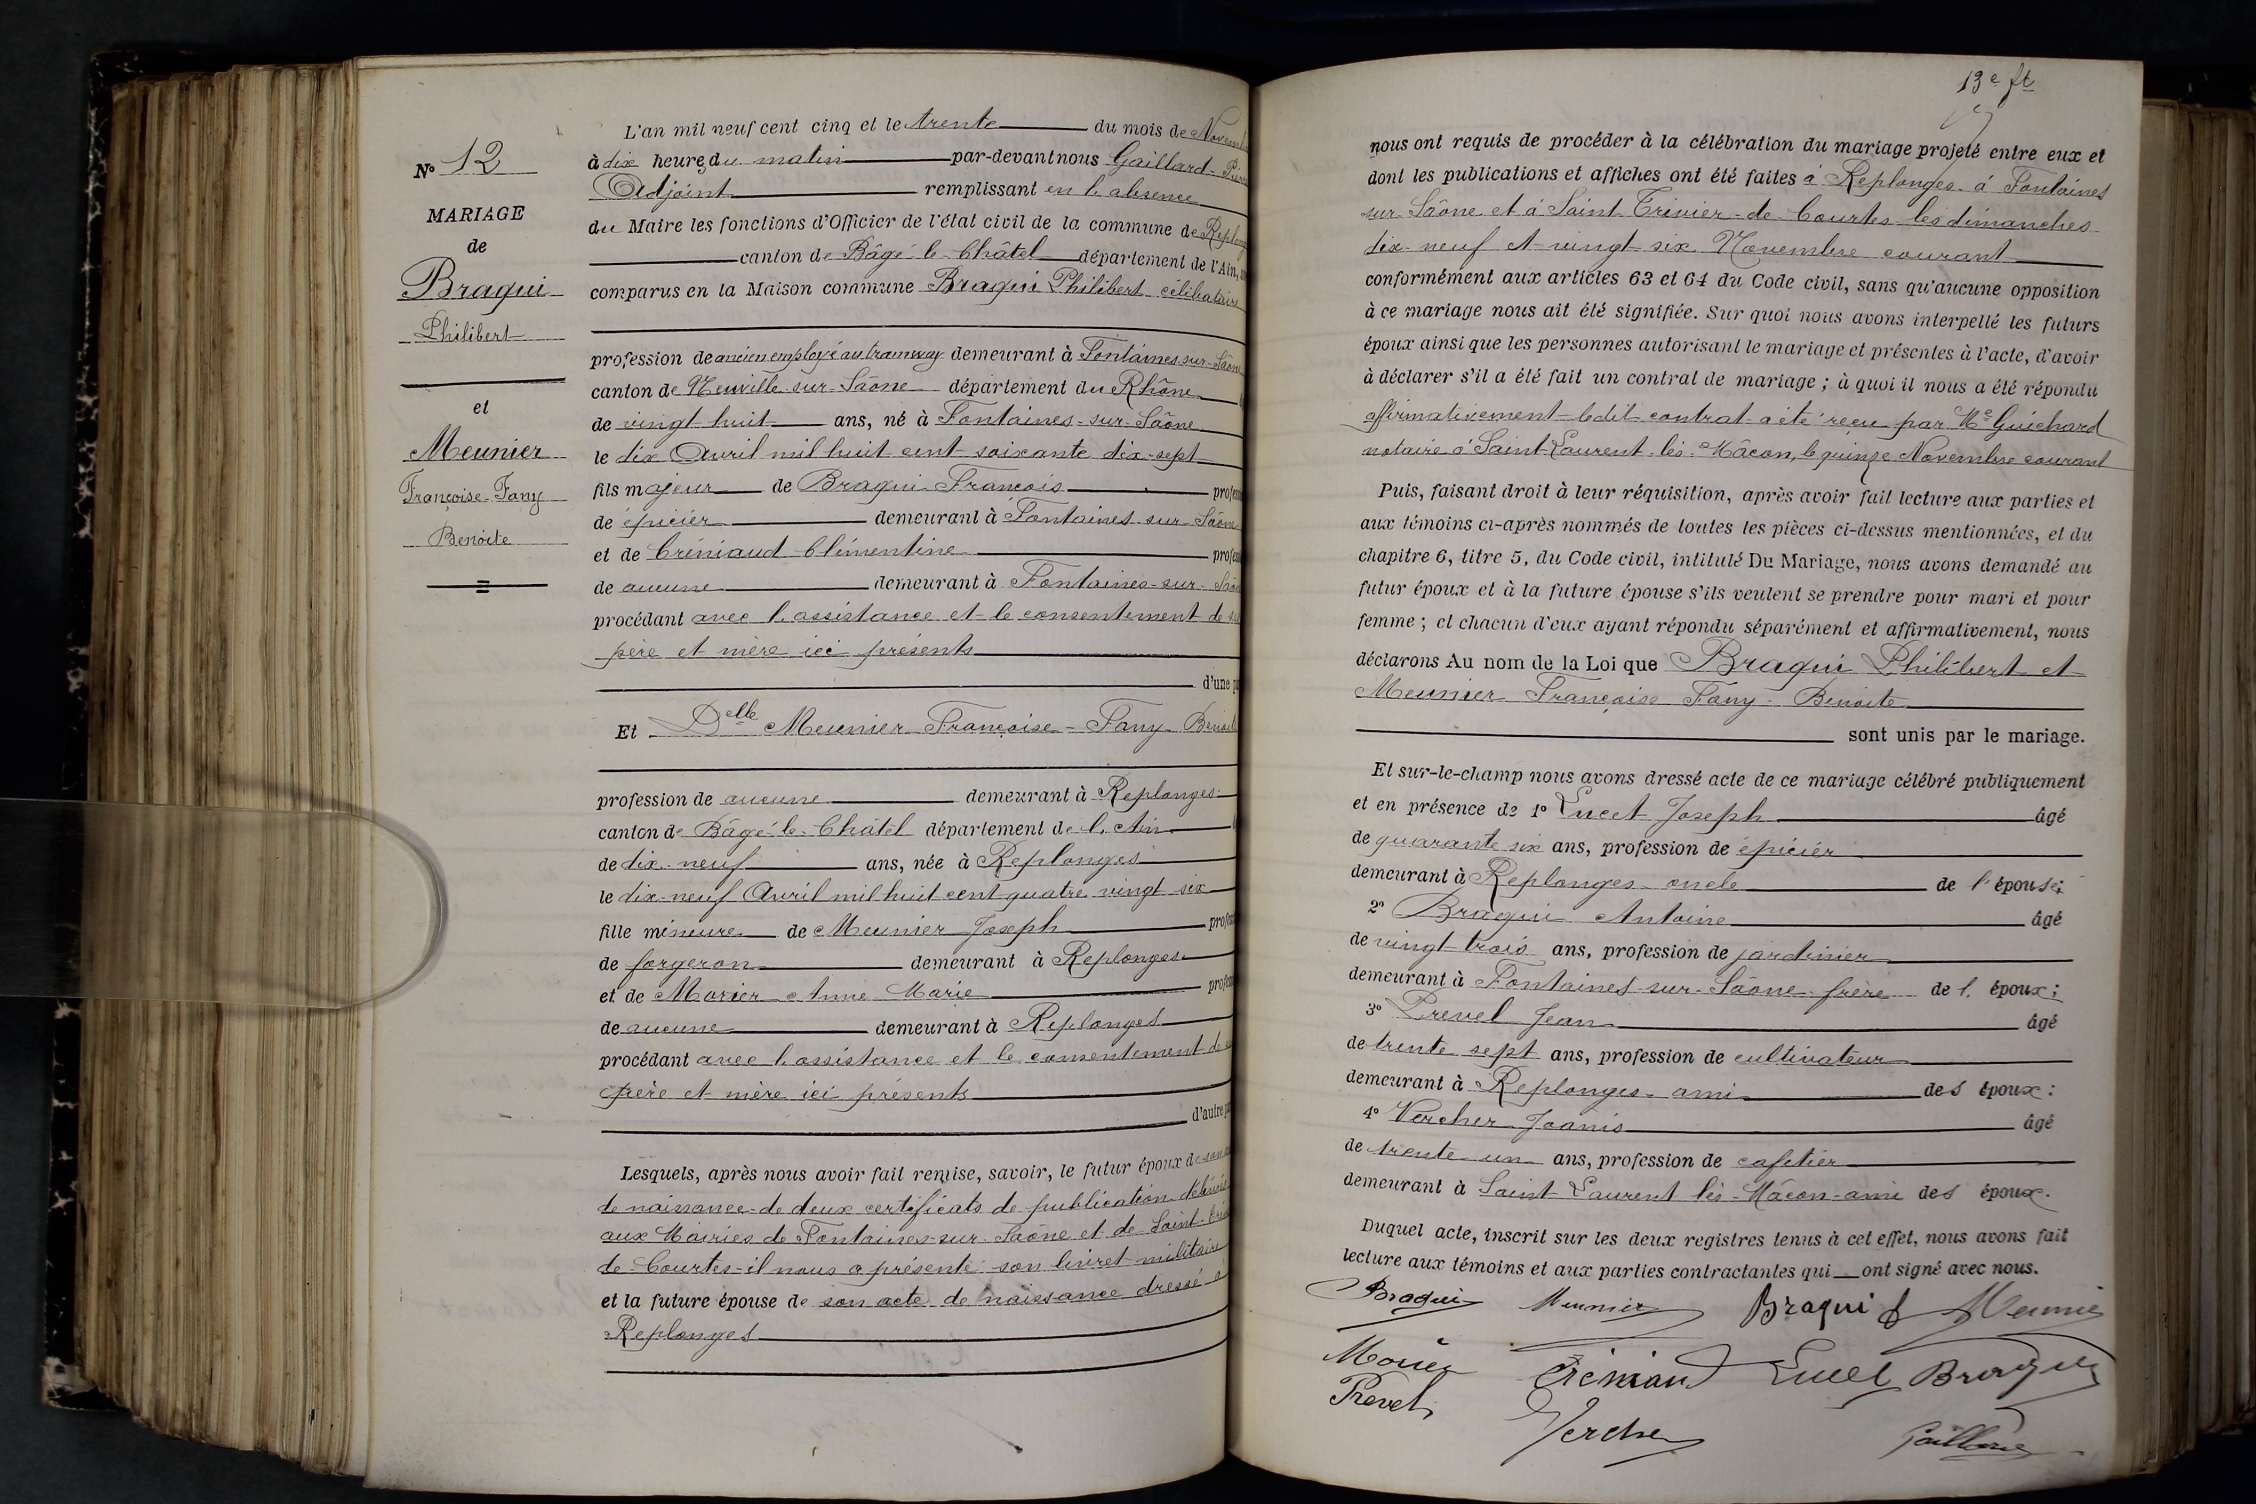 N° 12
MARIAGE
de
Braqui
Philibert
et
Meunier
Françoise-Fany
Benoite
L'an mil neuf cent cinq et le trente du mois de Novemb
à dix heures du matin par-devant nous Gaillard
Adjoint remplissant en l'absence
du Maire les fonctions d'Officier de l'état civil de la commune de Replong
canton de Bâgé-le-Châtel département de l'Ain,
comparus en la Maison commune Braqui Philibert célibataire
profession de ancien employé au tramway demeurant à Fontaines-sur-Saône
canton de Neuville-sur-Saône département du Rhône
de vingt-huit ans, né à Fontaines-sur-Saône
le dix Avril mil huit cent soixante dix-sept
fils majeur de Braqui François profes
de épicier demeurant à Fontaines-sur-Saône
et de Créniaud Clémentine profes
de aucune demeurant à Fontaines-sur-Saô
procédant avec l'assistance et le consentement de
père et mère ici présents
d'une pa
Et Delle Meunier Françoise-Fany-Benoit
profession de aucune demeurant à Replonges
canton de Bâgé-le-Châtel département de l'Ain
de dix-neuf ans, née à Replonges
le dix-neuf Avril mil huit cent quatre vingt six
fille mineure de Meunier Joseph profes
de forgeron demeurant à Replonges
et de Morier Anne Marie profes
de aucune demeurant à Replonges
procédant avec l'assistance et le consentement de
père et mère ici présents
d'autre pa
Lesquels, après nous avoir fait remise, savoir, le futur époux de son
de naissance-de deux certificats de publication délivrés
aux Mairies de Fontaines-sur-Saône et de Saint-Tri
de-Courtes-il nous a présenté son livret militaire
et la future épouse de son acte de naissance dressé à
Replonges
13e ft
nous ont requis de procéder à la célébration du mariage projeté entre eux et
dont les publications et affiches ont été faites à Replonges à Fontaines
sur-Saône et à Saint-Trivier-de-Courtes les dimanches
dix-neuf et vingt-six Novembre courant
conformément aux articles 63 et 64 du Code civil, sans qu'aucune opposition
à ce mariage nous ait été signifiée. Sur quoi nous avons interpellé les futurs
époux ainsi que les personnes autorisant le mariage et présentes à l'acte, d'avoir
à déclarer s'il a été fait un contrat de mariage ; à quoi il nous a été répondu
affirmativement-ledit contrat a été reçu par Me Guichard
notaire à Saint-Laurent-lès-Mâcon, le quinze Novembre courant
Puis, faisant droit à leur réquisition, après avoir fait lecture aux parties et
aux témoins ci-après nommés de toutes les pièces ci-dessus mentionnées, et du
chapitre 6, titre 5, du Code civil, intitulé Du Mariage, nous avons demandé au
futur époux et à la future épouse s'ils veulent se prendre pour mari et pour
femme ; et chacun d'eux ayant répondu séparément et affirmativement, nous
déclarons Au nom de la Loi que Braqui Philibert et
Meunier Françoise Fany-Benoite
sont unis par le mariage.
Et sur-le-champ nous avons dressé acte de ce mariage célébré publiquement
et en présence de 1° Lucet Joseph âgé
de quarante six ans, profession de épicier
demeurant à Replonges-oncle de l'épouse;
2° Braqui Antoine âgé
de vingt-trois ans, profession de jardinier
demeurant à Fontaines-sur-Saône-frère de l'époux;
3° Prevel Jean âgé
de trente sept ans, profession de cultivateur
demeurant à Replonges-ami des époux:
4° Vercher Joanis âgé
de trente-un ans, profession de cafetier
demeurant à Saint Laurent lès-Mâcon-ami des époux.
Duquel acte, inscrit sur les deux registres tenus à cet effet, nous avons fait
lecture aux témoins et aux parties contractantes qui ont signé avec nous.
Braqui Meunier Braqui f Meunie
Morier Créniaud Lucet Braqui
Prevel Vercher Gaillard